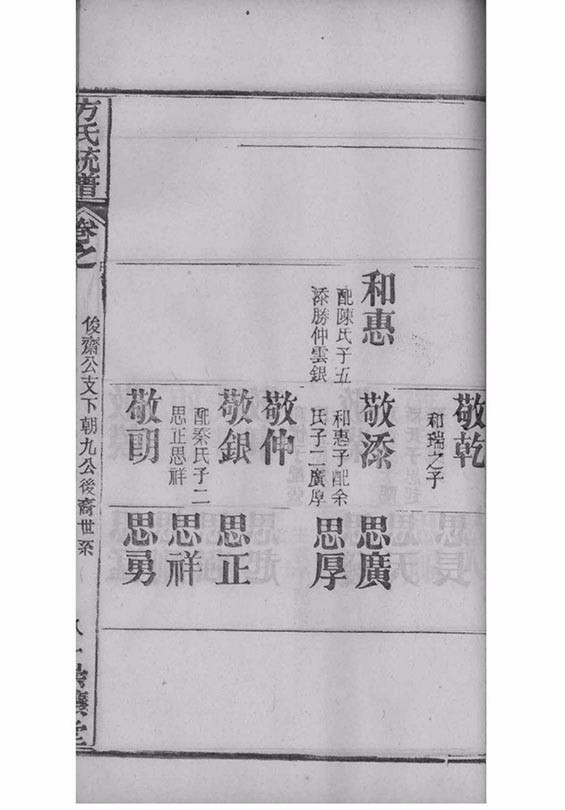 敬乾
和瑞之子
和惠
配陳氏子五
添勝仲雲銀
敬添
和惠子配余
氏子二廣厚
思廣
思厚
敬仲
敬銀
配秦氏子二
思正思祥
思正
思祥
敬朗
思勇
方氏統譜
卷之
俊齋公支下朝九公後裔世系